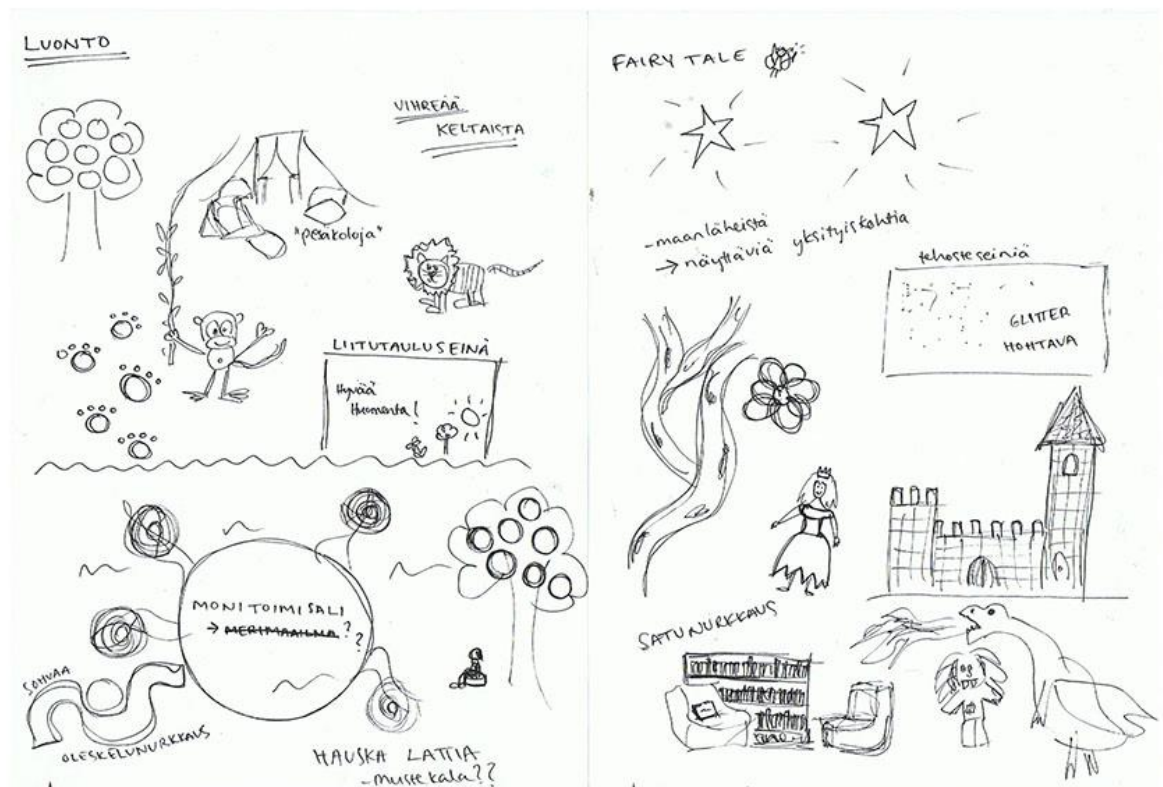 LUONTO
VIHREÄÄ
KELTAISTA
"pesäkoloja"
LIITUTAULUSEINÄ
Hyvää
Huomenta!
MONITOIMISALI
→ MERIMAAILMA ?
?
SOHVAA
OLESKELUNURKKAUS
HAUSKA LATTIA
- mustekala??
FAIRY TALE
- maanläheistä
→ näyttäviä yksityiskohtia
tehosteseiniä
GLITTER
HOHTAVA
SATUNURKKAUS